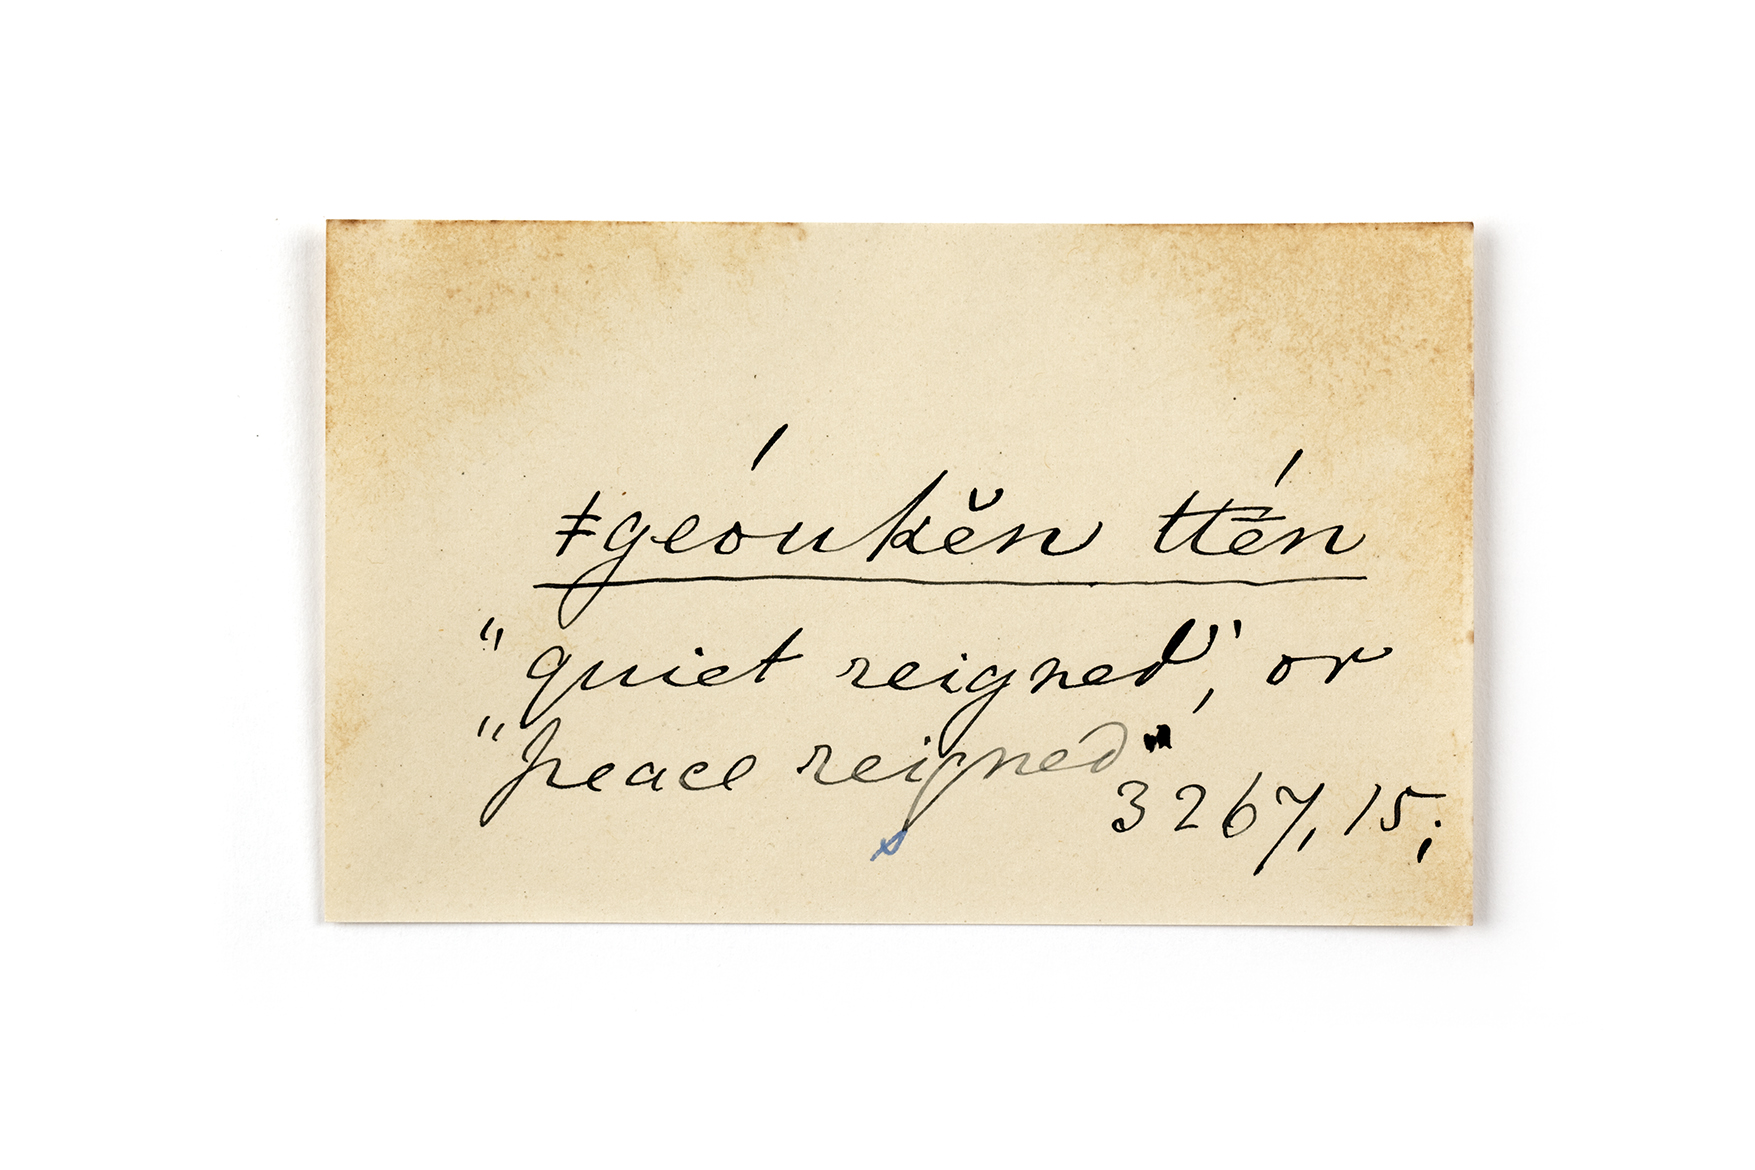 ǂgeóukĕn ttén
"quiet reigned", or
"peace reigned"
3267, 15;